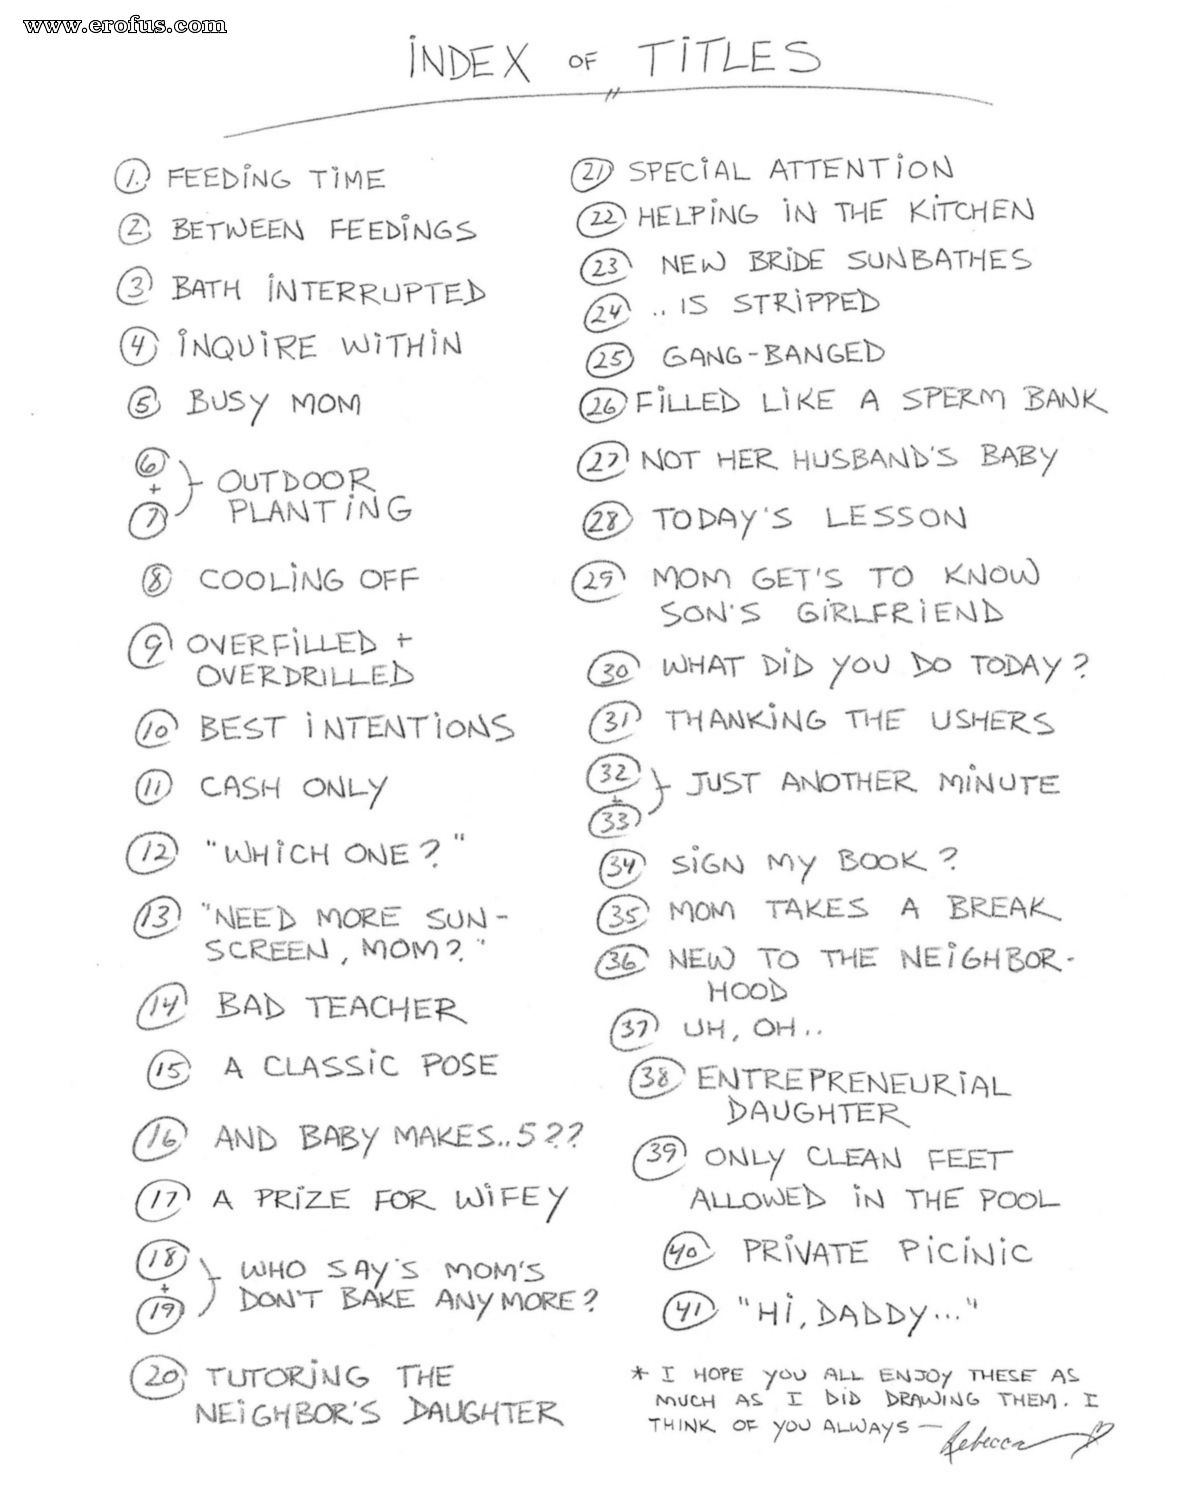 www.erofus.com
INDEX OF TITLES
1. FEEDING TIME
2 BETWEEN FEEDINGS
3 BATH INTERRUPTED
4 INQUIRE WITHIN
5 BUSY MOM
6 + 7 } OUTDOOR
PLANTING
8 COOLING OFF
9 OVERFILLED +
OVERDRILLED
10 BEST INTENTIONS
11 CASH ONLY
12 "WHICH ONE?"
13 "NEED MORE SUN-
SCREEN, MOM?"
14 BAD TEACHER
15 A CLASSIC POSE
16 AND BABY MAKES..5??
17 A PRIZE FOR WIFEY
18 + 19 } WHO SAY'S MOM'S
DON'T BAKE ANYMORE?
20 TUTORING THE
NEIGHBOR'S DAUGHTER
21 SPECIAL ATTENTION
22 HELPING IN THE KITCHEN
23 NEW BRIDE SUNBATHES
24 ..IS STRIPPED
25 GANG-BANGED
26 FILLED LIKE A SPERM BANK
27 NOT HER HUSBAND'S BABY
28 TODAY'S LESSON
29 MOM GET'S TO KNOW
SON'S GIRLFRIEND
30 WHAT DID YOU DO TODAY?
31 THANKING THE USHERS
32 + 33 } JUST ANOTHER MINUTE
34 SIGN MY BOOK?
35 MOM TAKES A BREAK
36 NEW TO THE NEIGHBOR-
HOOD
37 UH, OH..
38 ENTREPRENEURIAL
DAUGHTER
39 ONLY CLEAN FEET
ALLOWED IN THE POOL
40 PRIVATE PICINIC
41 "HI, DADDY..."
* I HOPE YOU ALL ENJOY THESE AS
MUCH AS I DID DRAWING THEM. I
THINK OF YOU ALWAYS — Rebecca